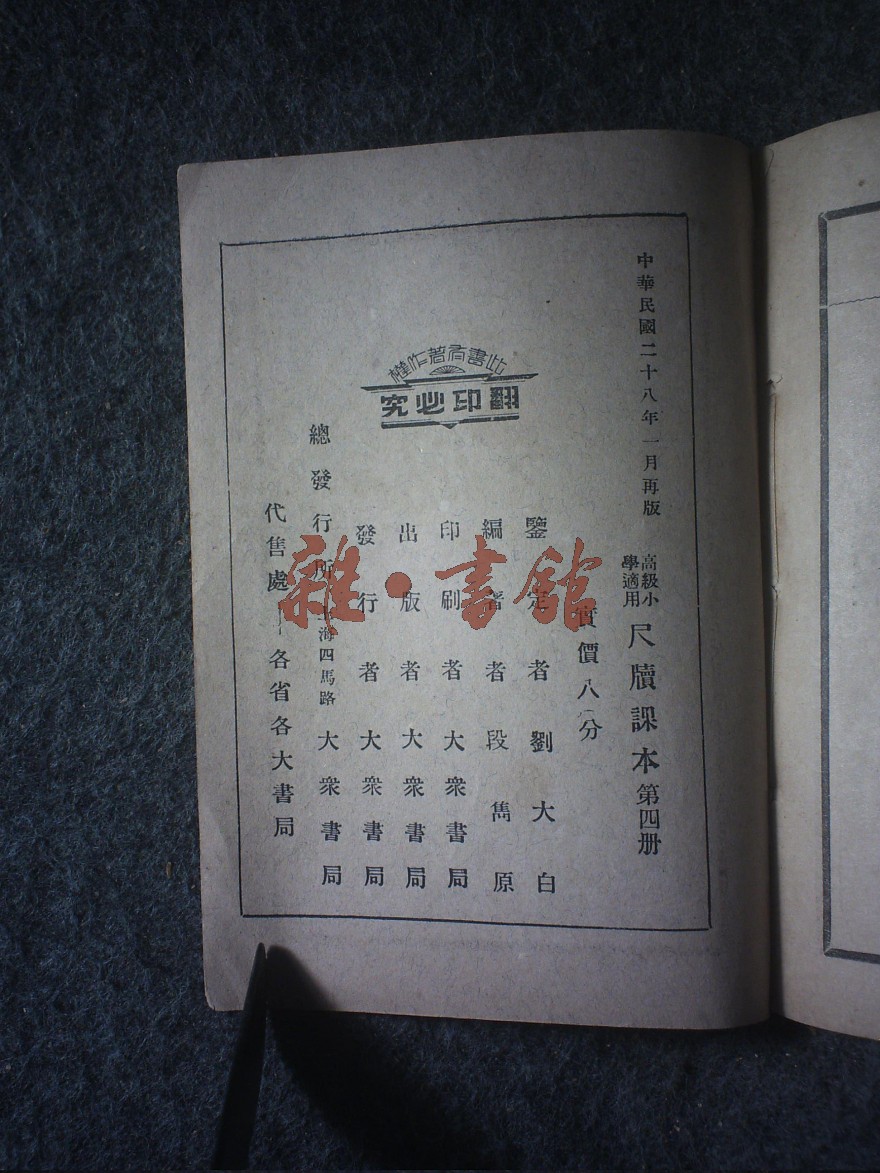 中華民國二十八年一月再版
高級小
學適用
尺牘課本第四册
實價八分
鑒定者劉大白
編著者段雋原
印刷者大衆書局
出版者大衆書局
發行者大衆書局
此書有著作權
翻印必究
總發行所上海四馬路大衆書局
代售處各省各大書局
雜·書館